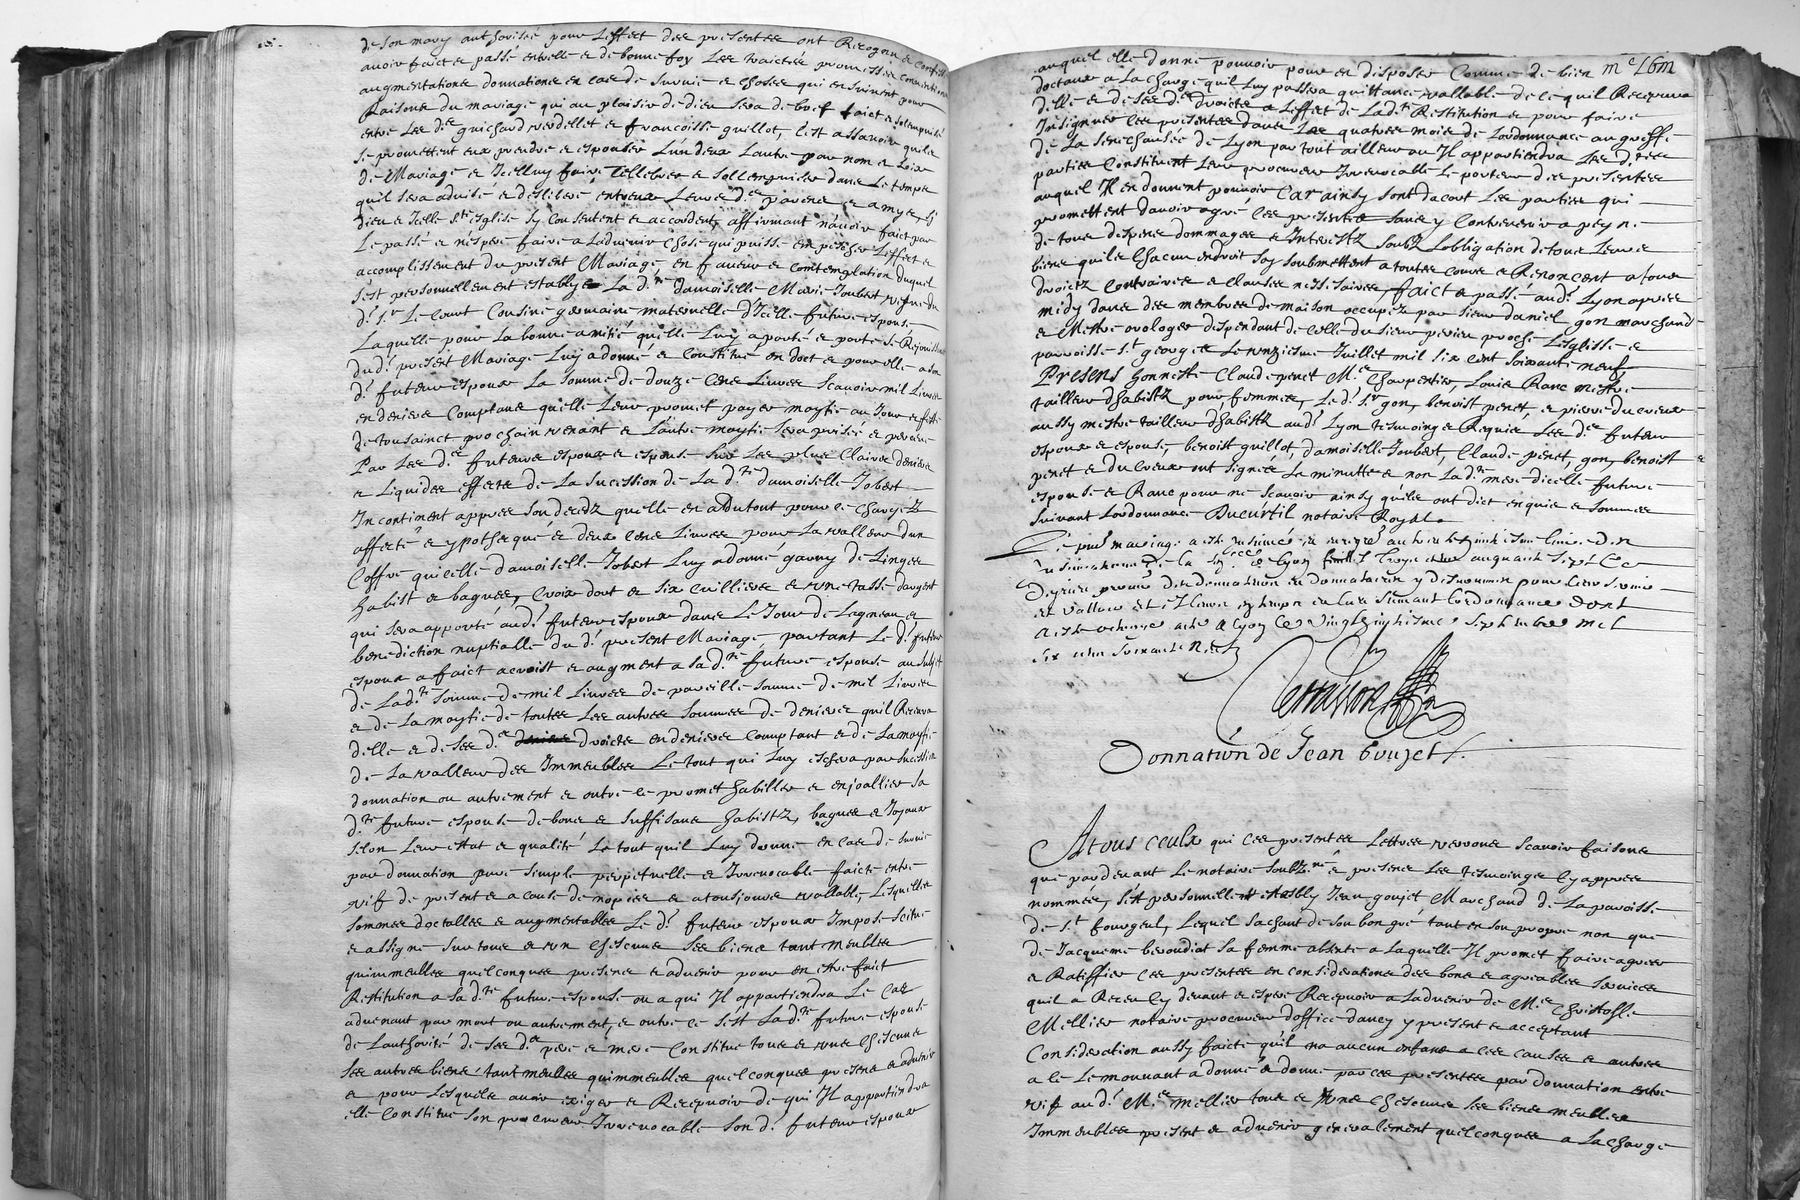 de son mary authorisée pour l'effect des presentes ont Recognu & confessé
avoir faict & passé entre eux de bonne foy les traictés promesses conventions
augmentations donnations en cas de survie & choses qui ensuivent pour
Raison du mariage qui au plaisir de dieu sera de bref faict & solempnisé
entre les d.es guichard verdellet & francoise guillot, C'est assavoir quils
se promettent eux prendre & espouser L'un deux Lautre par nom & Loix
de Mariage & Icelluy faire Cellebrer & sollempnizer dans Le temps
quil sera advisé & desliberé entreux Leurs d.es parens & amys, sy
dieu & nostre s.te Esglise sy Consentent & accordent, affirmant n'avoir faict par
Le passé & n'espere faire a Ladvenir Chose qui puisse empescher L'effect &
accomplissement du present Mariage en faveur & contemplation duquel
s'est personnellement establye La d.te damoiselle Marie Joubert vefve du
d.t s.r Le Court Cousine germaine maternelle d'Icelle future espouse
Laquelle pour La bonne amitié quelle Luy a porté & porte se Rejouissant
dud.t present Mariage Luy a donné & Constitué en doct & pour elle a son
d.t futeur espoux La somme de douze Cens Livres Scavoir mil Livres
en deniers Comptans quelle Leur promet payer moytié au Jour & feste
de toussainct prochain venant & Lautre moytié sera prise & perceue
Par Les d.es futeurs espoux & espouse sur Les plus Claires deniers
& Liquides effects de La sucession de La d.te damoiselle Jobert
Incontinent appres son decedz quelle en a du tout pour ce Chargez
affecté & ypothequé & deux Cens Livres pour La valleur dun
Coffre qu'icelle damoiselle Jobert Luy a donné garny de Linges
habist & bagues, Croix dort & six cuillieres & une tasse dargent
qui sera apporté aud.t futeur espoux dans Le Jour de Lagneau &
benediction nuptialle du d.t present Mariage, partant Le d.t futeur
espoux a faict acroist & augment a sa d.te future espouse au subject
de Lad.te somme de mil Livres de pareille somme de mil Livres
& de La moytie de toutes Les autres sommes de deniers quil Recevra
delle & de ses d.es droicts en deniers Comptant & de La moytie
de La valleur des Immeubles Le tout qui Luy eschera par sucession
donnation ou autrement & outre ce promet habiller & enjoallier sa
d.te future espouse de bons & suffisans habistz, bagues & Joyaux
selon Leur estat & qualité Le tout quil Luy donne en cas de survie
par donnation pure simple perpetuelle & Irrevocable faicte entre
vifz de present a cause de nopces & a tousjours vallable, Lesquelles
sommes doctalles & augmentables Le d.t futeur espoux Impose scitue
& assigne sur tous & un Chescuns ses biens tant meubles
quimmeubles quelconques presens & advenir pour en estre faict
Restitution a sa d.te future espouse ou a qui Il appartiendra Le Cas
advenant par mort ou autrement, & outre ce s'est La d.te future espouse
de Lauthorité de ses d.es pere & mere Constitué tous & uns Chescuns
ses autres biens tant meubles quimmeubles quelconques presens & advenir
& pour Lesquels avoir exiger & Recepvoir de qui Il appartiendra
elle Constitue son procureur Irrevocable son d.t futeur espoux
auquel elle donne pouvoir pour en disposer Comme de bien
doctaux a La charge quil Luy passera quittance vallable de ce quil Recepvra
delle & de ses d.es droicts a L'effect de La d.te Restitution & pour faire
Insignuer Les presentes dans Les quatres mois de Lordonnance au greffe
de La seneschausée de Lyon par tout ailleur ou Il appartiendra Les d.tes
parties Constituent Leur procureur Irrevocable Le porteur des presentes
auquel Il en donnent pouvoir Car ainsy sont dacort Les parties qui
promettent davoir agré Ces presentes sans y Contrevenir a peyne
de tous despens dommages & Interestz soubz Lobligation de tous Leurs
biens quils Chacun endroit soy soubmettent a toutes cours & Renoncent a tous
droictz Contraires & Clauses nessesaires, faict & passé aud.t Lyon apres
midy dans des menbres de maison occupez par sieur daniel gon marchand
& Mestre orologer despendant de celle du sieur perier proche Lesglisse &
paroisse s.t george Le unziesme Juillet mil six cent soixante neuf
Presens honneste Claude penet M.e Charpentier, Louis Ranc mestre
tailleur dhabistz pour femmes, Le d.t s.r gon, benoist penet, & pierre du creux
aussy mestre tailleur dhabistz aud.t Lyon tesmoings Requis Les d.es futeur
espoux & espouse, benoist guillot, damoiselle Joubert, Claude penet, gon, benoist
penet & du Creux ont signés La minutte & non La d.te mere dicelle future
espouse & Ranc pour ne scavoir ainsy quils ont dict enquis & sommés
suivant Lordonnance Ducurtil notaire Royal
six cens soixante Neuf
Donnation de Jean Goujet
A tous ceulx qui ces presentes Lettres verrons Scavoir faisons
que pardevant Le notaire soubz.né & presens Les tesmoings cy appres
nommés, s'est personnellemt establly Jean goujet Marchand de La paroisse
de s.t fourgeul, Lequel sachant de son bon gré tant en son propre non que
de Jacqueme beroudiat sa femme absente a Laquelle Il promet faire agreer
& Ratiffier Ces presentes en considerations des bons & agreables services
quil a Receu cy devant & espere Recepvoir a Ladvenir de M.e Christofle
Mellier notaire procureur doffice dancy y present & acceptant
Consideration aussy faicte qu'il na aucun enfans a ces causes & autres
a ce Le mouvant a donné & donne par ces presentes par donnation entre
vifz aud.t M.e Mellier tous & uns Chescuns ses biens meubles
Immeubles present & advenir generalement quelconques a La charge